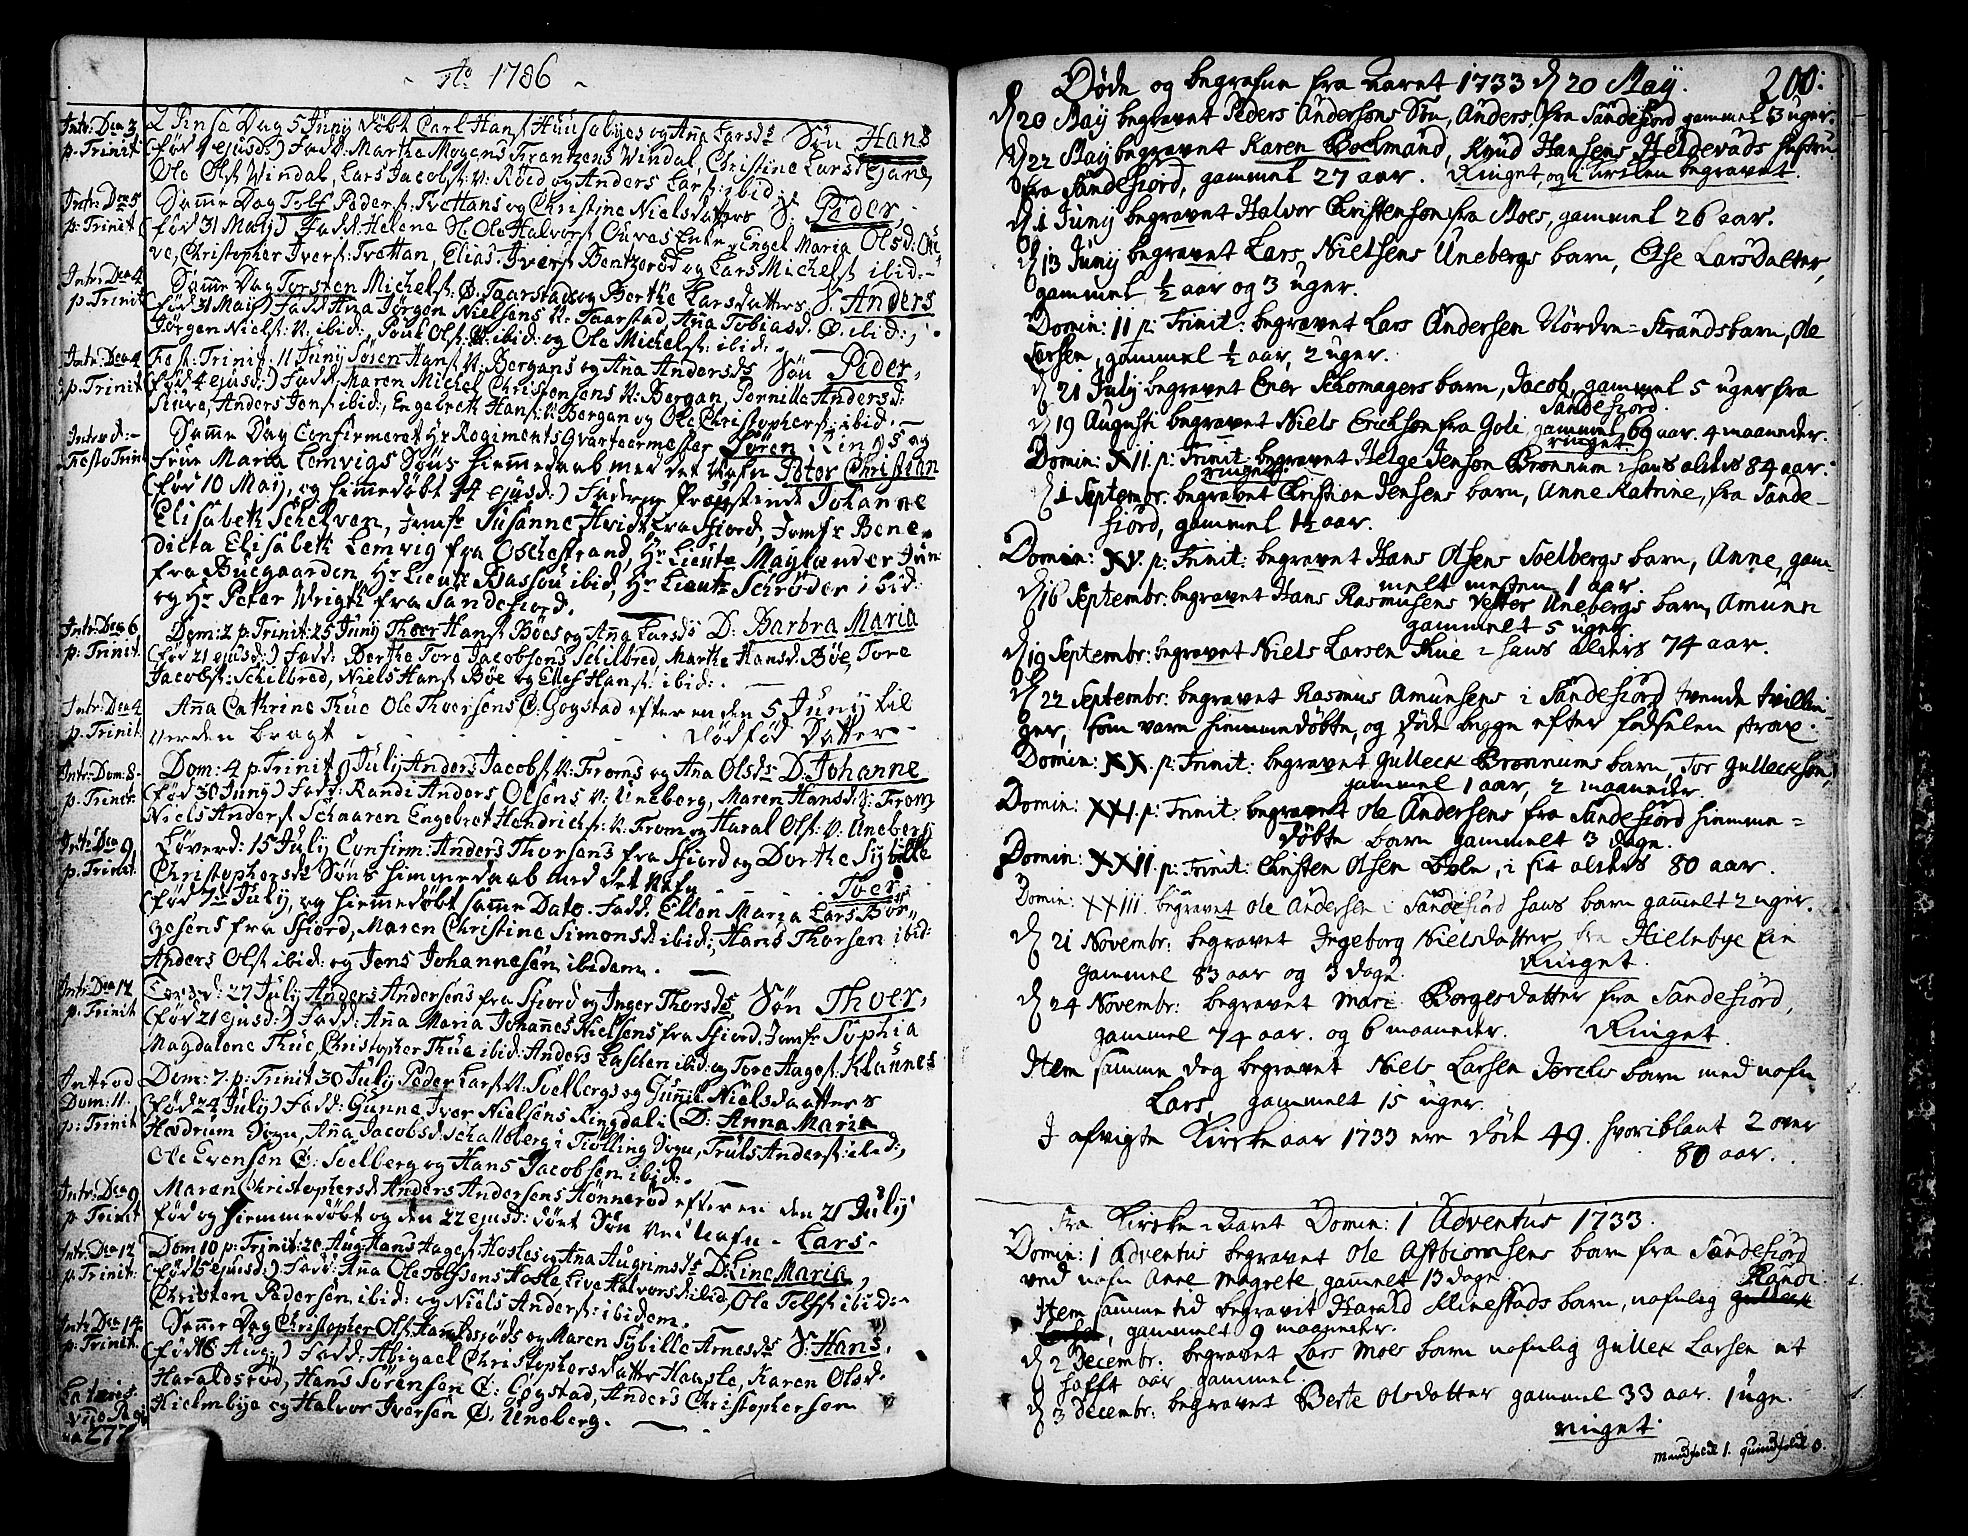 Ao 1786
Intr: Dca 3
p. Trinit
2 Pinse Dag 5 Junij døbt Carl Hans Huusebyes og Ana Larsds Søn Hans
(fød 1 ejusd:) Fadd: Marthe Mogens Frantzens Windal, Christine Lars Ejane,
Ole Ols Windal, Lars Jacobs: N: Røed og Anders Lars: ibid:
Intr: Dca 5
p: Trinit
Samme Dag Tolf Peders: Tvethans og Christine Nielsdatters S: Peder,
(fød 31 Maij) Fadd: Helene Ole Halvors Ouves Enke, Engel Maria Olsd: Ou-
ve, Christopher Ivers: Tvethan, Elias Ivers Bentzerød og Lars Michels ibid:-
Intr: Dca 4
p: Trinit
Samme Dag Torsten Michels: Ø. Taarstads og Berthe Larsdatters S. Anders
(fød 31 Maij) Fadd Ana Jørgen Nielsens N. Taarstad, Ana Tobiasd. Ø. ibid:,
Jørgen Niels: N. ibid:, Poul Ols: N. ibid: og Ole Michels: ibid:
Intr: Dca 4
p: Trinit
Fest: Trinit. 11 Junij Søren Hans: N. Bergans og Ana Andersds Søn Peder,
(fød 4 ejusd:) Fadd, Maren Michel Christensens N: Bergan, Pernille Andersd:
Stuve, Anders Jens: ibid:, Engebreth Hans: N. Bergan og Ole Christophers: ibid.-
Introd:-
Festo Trinit
Samme Dag Confirmeret Hr Regiments Qvarteermester Søren Lings og
Frue Maria Lemvigs Søns Hiemmedaab med det Nafn Peter Christian
(fød 10 Maij, og hiemmedøbt 14 ejusd:) Faderne Provstinde Johanne
Elisabeth Schelven, Jomfr Susanne Hvidt fra Fiord, Jomfr Bene-
dicta Elisabeth Lemvig fra Oschestrand, Hr Lieutn Maylænder Jun:
fra Buegaarden, Hr Lieutn Klassou ibid, Hr Lieutn Schrøder ibid:
og Hr Peter Wrigth fra Sandefiord.
Intr: Dca 6
p: Trinit
Dom: 2 p: Trinit: 25 Junij Thoer Hans Bøes og Ana Larsds D: Barbra Maria
(fød 21 ejusd:) Fadd: Berthe Tore Jacobsens Schilbred, Marthe Hansd: Bøe, Tore
Jacobs: Schilbred, Niels Hans Bøe og Ellef Hans: ibid:.
Intr: Dca 4
p. Trinit
Ana Cathrine Thue Ole Thversens Ø: Gogstad efter en den 5 Junij til
Verden bragt - - - - - Dødfød Datter
Intr: Dom: 8-
p. Trinit:
Dom: 4 p. Trinit: 9 Julij Anders Jacobs: N. Froms og Ana Olsds D: Johanne
(fød 30 Junij) Fadd: Randi Anders Olsens N: Uneberg, Maren Hansd: N. From,
Niels Anders Schaaren Engebret Hendrichs: N. From og Haral Ols: N. Uneberg
Intr: Dca 9
p. Trinit.
Løverd: 15 Julij Confirm: Anders Thorsens fra Fiord og Dorthe Sybille
Christophersds Søns hiemmedaab med det Nafn - - - - Thoer
(fød 7de Julij, og hiemmedøbt samme Dato. Fadd. Ellen Maria Lars Bør-
gesens fra Fiord, Maren Christine Simonsd: ibid:, Hans Thorsen ibid:
Anders Ols: ibid: og Jens Johannesen ibidem.
Intr: Dca 12
p. Trinit
Torsd: 27 Julij Anders Andersens fra Fiord og Inger Thorsds Søn Thoer,
(fød 21 ejusd:) Fadd: Ana Maria Johanes Nielsens fra Fiord, Jomfr Sophia
Magdalene Thue, Christopher Thue ibid: Anders Laschen ibid: og Tore Hages: Klavnes
Introd
Dom: 11.
p: Trinit
Dom: 7. p: Trinit 30 Julij Peder Lars: N. Soelbergs og Gunnil Nielsdaatters
(fød 24 Julij) Fadd: Gunne Iver Nielsens Ringdal i (D: Anna Maria
Hedrum Sogn, Ana Jacobsd: Schallberg i Tiølling Sogn, Truls Anders: ibid:,
Ole Evensen Ø: Soelberg og Hans Jacobsen ibid:.
Intr: Dca 9
p. Trinit
Maren Christophersd. Anders Andersens Hønnerød efter en den 21 Julij
fød og hiemmedøbt og den 22 ejusd: Dødt Søn ved Nafn - Lars-
Intr: Dca 12
p. Trinit:
Dom 10 p: Trinit: 20 Aug: Hans Hages: Hasles og Ana Augrimsds D: Line Maria,
(fød 15 ejusd:) Fadd: Ana Ole Tolfsens Hasle, Live Halvorsd: ibid:, Ole Tolfs: ibid:-
Christen Pedersen ibid: og Niels Anders: ibidem.
Intr: Dca 14
p: Trinit.
Samme Dag Christopher Ols: Haraldsrøds og Maren Sybille Arnesds S: Hans,
(fød 16 Aug:) Fadd: Abigael Christophersdatter Haasle, Karen Olsd.
Haraldsrød, Hans Sørensen Ø: Gogstad, Anders Christophersen
Hielmbye og Halvor Iversen Ø. Uneberg.
Cæteris
vide Pagi
na 277
200:
Døde og begrafne fra aaret 1733 d 20 May.
d 20 May begravet Peders Andersens Søn, Anders, fra Sandefiord gammel 3 uger.
d 22 May begravet Karen Bockmand, Knud Hansens Heldevads hustru
fra Sandefiord, gammel 27 aar. Ringet, og i kirken begravet.
d 1 Junij begravet Halvor Christensen fra Moes, gammel 26 aar.
d 13 Junij begravet Lars Nielsens Unebergs barn, Else LarsDatter,
gammel ½ aar og 3 uger.
Domin: 11 p: Trinit: begravet Lars Andersen Nordre = Strands barn, Ole
Larsen, gammel ½ aar, 2 uger.
d 21 July begravet Ener Schomagers barn, Jacob, gammel 5 uger fra
Sandefiord.
d 19 Augusti begravet Niels Ericksen fra Goli gammel 69 aar. 4 maaneder.
ringet.
Domin: XII. p: Trinit: begravet Helge Jensen Brønnum i hans alders 84 aar.
ringet.
d 1 Septembr: begravet Christian Jensens barn, Anne Katrine, fra Sande-
fiord, gammel 1½ aar.
Domin: XV. p: Trinit: begravet Hans Olsens Soelbergs barn, Anne, gam-
melt nesten 1 aar.
d 16 Septembr: begravet Hans Rasmusens Vester Unebergs barn, Amunn
gammelt 5 uger
d 19 Septembr: begravet Niels Larsen Thue i hans alders 74 aar.
d 22 Septembr: begravet Rasmus Amunsens i Sandefiord tvende tvillin-
ger, som vare hiemmedøbte, og døde begge efter fødselen strax.
Domin: XX. p: Trinit: begravet Gulleck Brønnums barn, Tor Gulleckson,
gammel 1 aar, 2 maaneder.
Domin: XXI. p: Trinit: begravet Ole Andersens fra Sandefiord hiemme=
døbte barn gammelt 3 dage.
Domin: XXII. p: Trinit: Christen Olsen Bøle, i sit alders 80 aar.
Domin: XXIII. begravet Ole Andersen i Sandefiord hans barn gammelt 2 uger.
d 21 Novembr: begravet Ingeborg Nielsdatter fra Hielmbye Ein
gammel 83 aar og 3 dage. Ringet.
d 24 Novembr: begravet Mari Borgersdatter fra Sandefiord,
gammel 74 aar. og 6 maaneder. Ringet.
Item samme dag begravet Niels Larsen Jorchs barn med nafn
Lars, gammelt 15 uger.
I afvigte Kirke aar 1733 ere døde 49. hvoriblant 2 over
80 aar.
Fra Kirke-Aaret Domin: 1 Adventus 1733.
Domin: 1 Adventus begravet Ole Astbiørnsens barn fra Sandefiord
ved nafn Anne Magrete gammelt 13 dage.
Randi
Item samme tid begravit Harald Minestads barn, nafnlig
, gammelt 9 maaneder.
d 2 Decembr: begravet Lars Moes barn nafnlig Gulleck Larsen et
halft aar gammel.
d 3 Decembr: begravet Berte Olsdatter gammel 33 aar. 1 uge.
ringet.
Mandfolck 1. quindfolck 0.